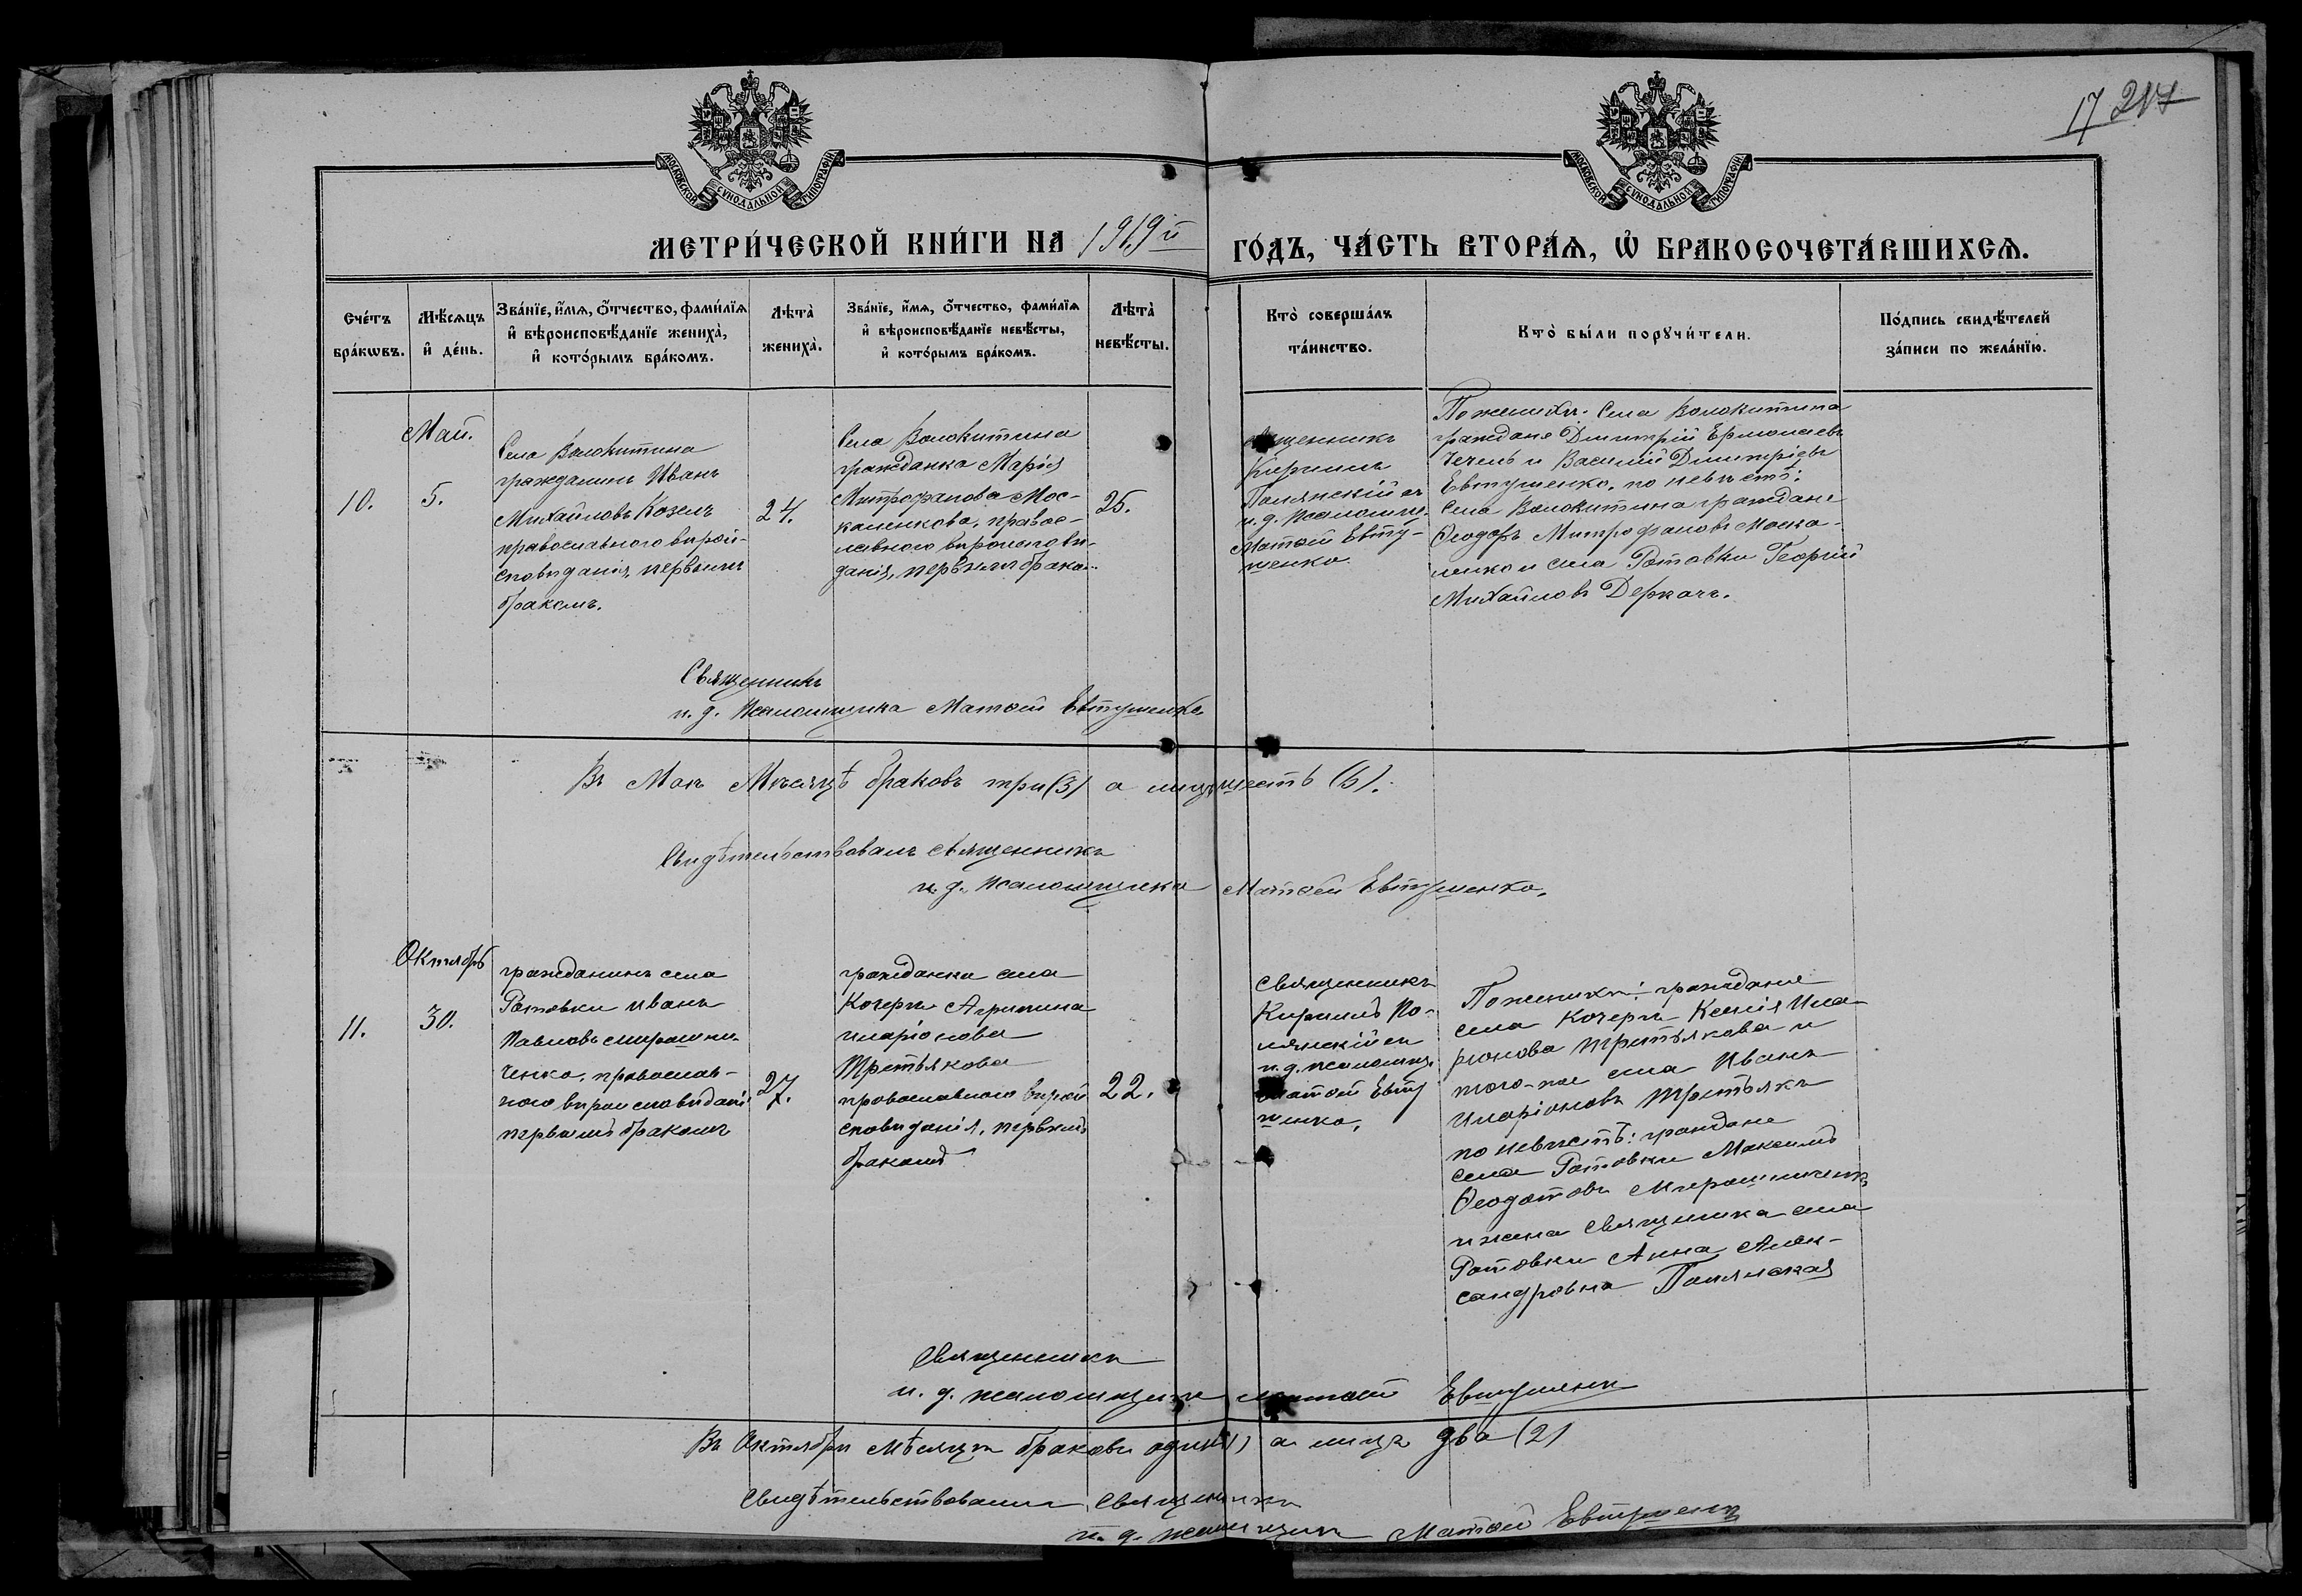 17 217
МОСКОВСКОЙ СУНОДАЛЬНОЙ ТИПОГРАФІИ
МОСКОВСКОЙ СУНОДАЛЬНОЙ ТИПОГРАФІИ
МЕТРИ́ЧЕСКОЙ КНИ́ГИ НА 1919й ГО́ДЪ, ЧА́СТЬ ВТОРА́Я, Ѡ҆ БРАКОСОЧЕТА́ВШИХСЯ.
Сче́тъ
бра́кѡвъ.
Мѣ́сяцъ
и҆ де́нь.
Зва́нїе, и҆́мя, ѻ҆́тчество, фами́лїя
и҆ вѣроисповѣ́данїе жениха̀,
и҆ кото́рымъ бра́комъ.
Лѣта̀
жениха̀.
Зва́нїе, и҆́мя, ѻ҆́тчество, фами́лїя
и҆ вѣроисповѣ́данїе невѣ́сты,
и҆ кото́рымъ бра́комъ.
Лѣта̀
невѣ́сты.
Кто̀ соверша́лъ
та́инство.
Кто̀ бы́ли порꙋчи́тели.
По́дпись свидѣ́телей
за́писи по жела́нїю.
10.
Май.
5.
Села Волокитина
гражданинъ Иванъ
Михайловъ Козелъ
православного вѣрои-
сповѣданія, первымъ
бракомъ.
24.
Села Волокитина
гражданка Марія
Митрофанова Мос-
каленкова, правос-
лавного вѣроисповѣ-
данія, первымъ брако..
25.
Священникъ
Кириллъ
Полянскій съ
и.д. псаломщ.
Матѳей Евту-
шенко.
По женихѣ. Села Волокитина
граждане Димитрій Ермолаевъ
Чечель и Василій Димитріевъ
Евтушенко, по невѣстѣ:
Села Волокитина граждане
Ѳеодоръ Митрофановъ Моска-
ленко и села Ротовки Георгій
Михайловъ Деркачъ.
Священникъ
и. д. Псаломщика Матѳей Евтушенко
Въ Маѣ Мѣсяцѣ браковъ три (3) а лицъ шесть (6).
Свидѣтельствовалъ священникъ
и. д. псаломщика Матѳей Евтушенко.
11.
Октябрь
30.
гражданинъ села
Ротовки Иванъ
Павловъ Мирошни-
ченко, православ-
ного вѣроисповѣдані
первымъ бракомъ
27.
гражданка села
Кочергъ Агрипина
Иларіонова
Третьякова
православного вѣрои
сповѣданія, первымъ
бракомъ
22.
Священникъ
Кириллъ По-
лянскій съ
и.д. псаломщ.
Матѳей Евту
шенко.
По женихѣ: граждане
села Кочергъ Ксенія Ила-
ріонова Третьякова и
того-же села Иванъ
Иларіоновъ Третьякъ
по невѣстѣ: граждане
села Ротовки Максимъ
Ѳеодотовъ Мирошниченк
и жена священика села
Ротовки Анна Алек-
сандровна Полянская
Священникъ
и. д. псаломщика Матѳей Евтушенк
Въ Октябрѣ мѣсяцѣ браковъ одинъ (1) а лицъ два (2)
Свидѣтельствовали Священникъ
и. д. псаломщик Матѳей Евтушенк